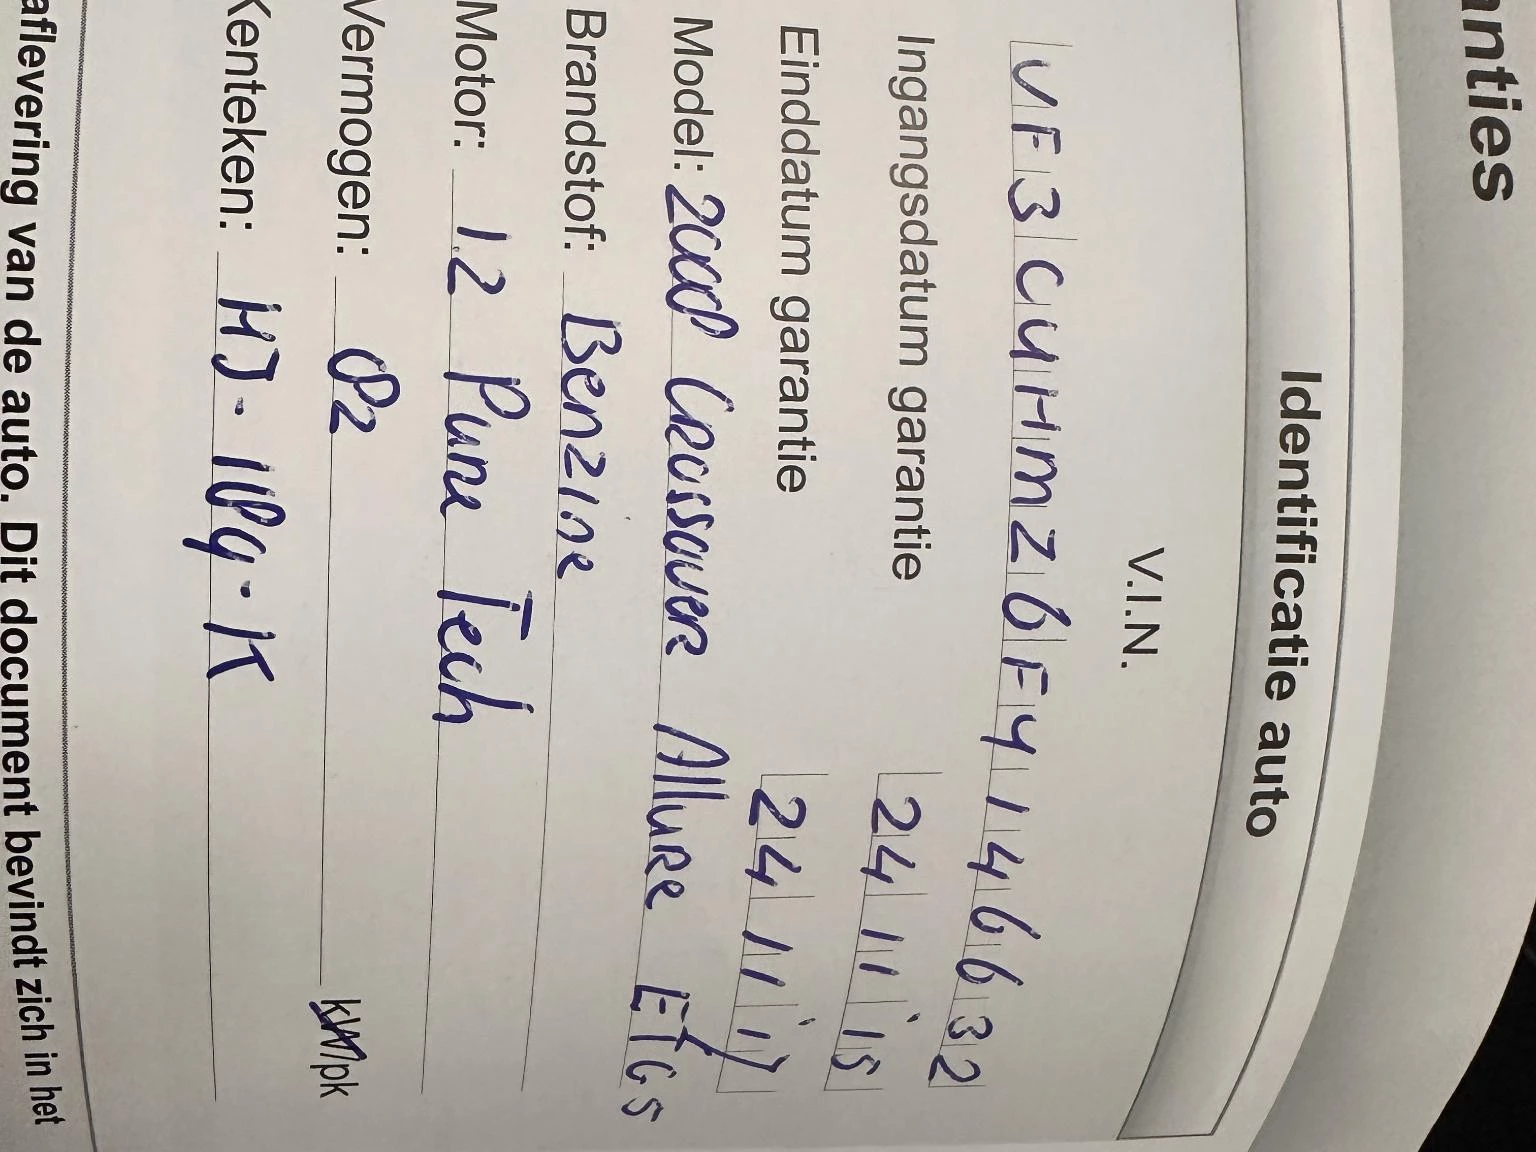 anties
Identificatie auto
V.I.N.
VF3CUHMZ6FY146632
Ingangsdatum garantie 24 11 15
Einddatum garantie 24 11 17
Model: 2008 Crossover Allure ETG5
Brandstof: Benzine
Motor: 1.2 Pure Tech
Vermogen: 82 kW/pk
Kenteken: HJ·189·K
aflevering van de auto. Dit document bevindt zich in het